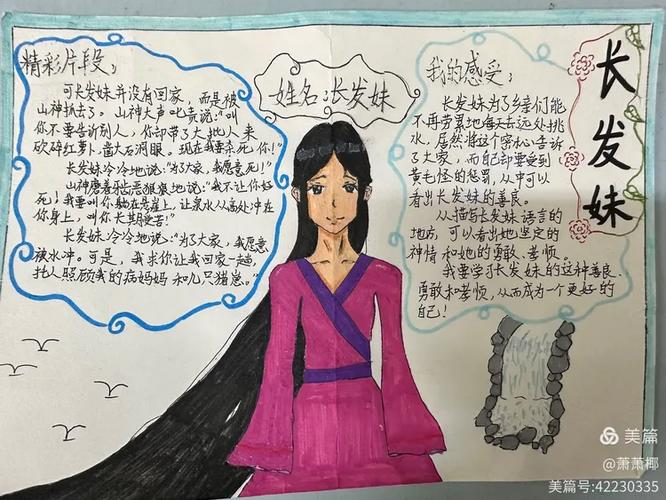 精彩片段：
可长发妹并没有回家，而是被
山神抓去了。山神大声叱责说："叫
你不要告诉别人，你却带了大批人来
砍碎红萝卜，凿大石洞眼。现在我要杀死你！"
长发妹冷冷地说："为了大家，我愿意死！"
山神磨着牙齿恶狠狠地说："我不让你好
死！我要叫你躺在悬崖上，让泉水从高处冲在
你身上，叫你长期受苦！"
长发妹冷冷地说："为了大家，我愿意
被水冲。可是，我求你让我回家一趟，
托人照顾我的病妈妈和几只猪崽。"
姓名：长发妹
我的感受：
长发妹为了乡亲们能
不再劳累地每天去远处挑
水，居然将这个秘心告诉
了大家，而自己却要受到
黄毛怪的惩罚，从中可以
看出长发妹的善良。
从描写长发妹语言的
地方，可以看出她坚定的
神情和她的勇敢、孝顺。
我要学习长发妹的这种善良、
勇敢和孝顺，从而成为一个更好的
自己！
长发妹
美篇
@萧萧椰
美篇号:42230335